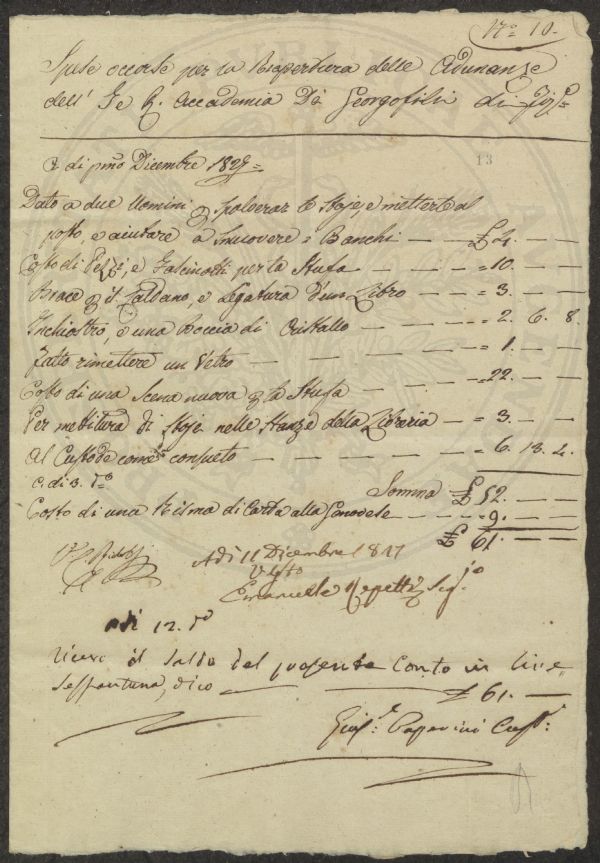 N.º 10.
Spese occorse per la Riapertura delle Adunanze
dell' I e R. Accademia De Georgofili di
13
A di pmo Dicembre 1827=
Dato a due Uomini p Spolverar le Stoje, e metterle al
posto, e aiutare a Muovere i Banchi — — £ 4. — —
Costo di Pezzi, e per la Stufa — — = 10. — —
Brace p il Caldano, e Legatura d'un Libro — = 3. — —
Inchiostro, e una Boccia di Cristallo — — — = 2. 6. 8.
Fatto rimettere un Vetro — — — — = 1. — —
Costo di una Scena nuova p la Stufa — — — = 22. — —
Per mettitura di Stoje nelle Stanze della Libreria — = 3. — —
Al Custode come consueto — — — — — = 6. 13. 4.
Somma £ 52. — —
E di 3. do
Costo di una Risma di Carta alla Genovese — — = 9. — —
£ 61. — —
A di 11 Dicembre 1827
Visto
Emanuelle Repetti Segrio
Adi 12. do
Ricevo il Saldo del presente Conto in Lire
Sessantuna, dico — — £ 61. —
Giuse. Paperini Custe.